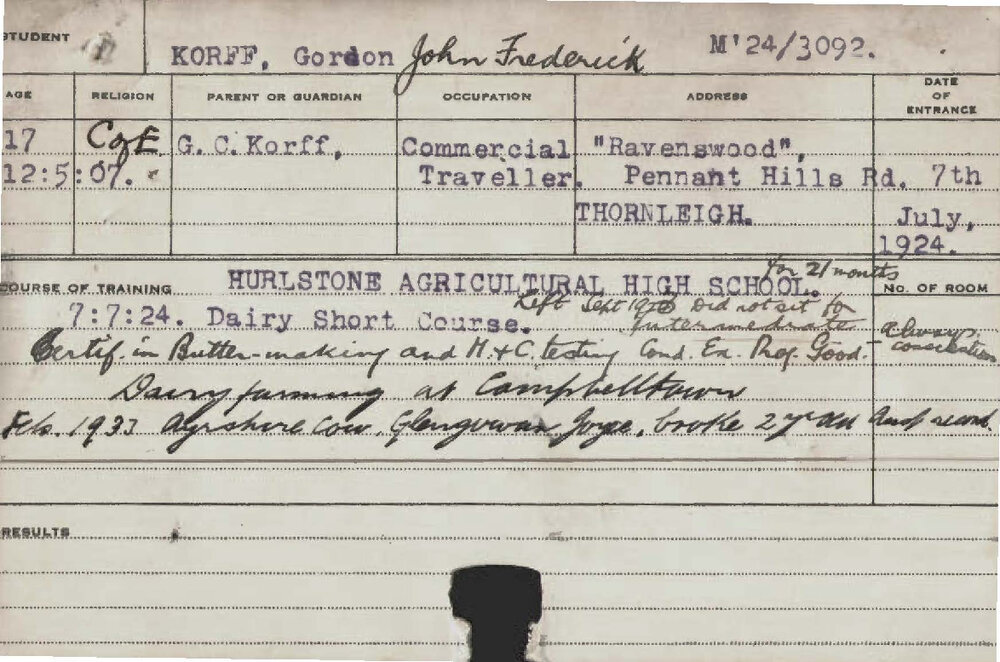 STUDENT
KORFF, Gordon John Frederick M'24/3092.
AGE RELIGION PARENT OR GUARDIAN OCCUPATION ADDRESS DATE OF ENTRANCE
17 C of E G. C. Korff, Commercial "Ravenswood",
12:5:07. Traveller. Pennant Hills Rd. 7th
THORNLEIGH. July,
1924.
HURLSTONE AGRICULTURAL HIGH SCHOOL. for 21 months
COURSE OF TRAINING No. OF ROOM
Left Sept Did not sit for
7:7:24. Dairy Short Course. Intermediate
Certif. in Butter-making and M. & C. testing Cond. Ex. Prof. Good. - always conscientious
Dairy farming at Campbelltown
Feb. 1933 Ayrshire Cow, Glengowan Joyce, broke 2 yr old Aust record.
RESULTS